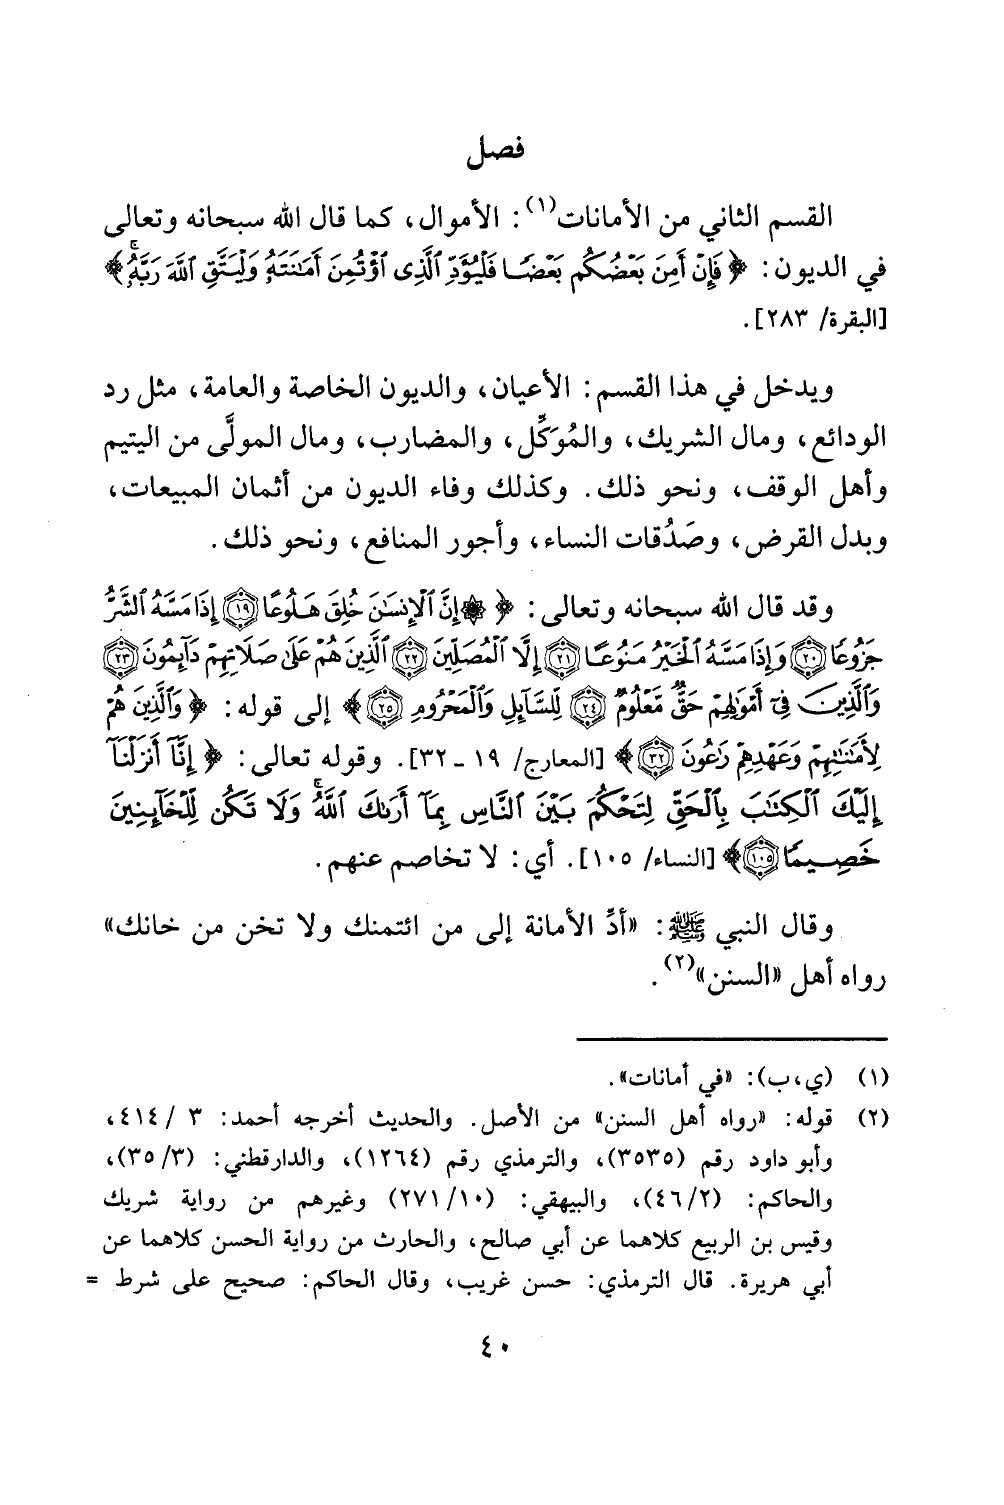 فصل
القسم الثاني من الأمانات(١): الأموال، كما قال الله سبحانه وتعالى
في الديون: ﴿ فَإِنْ أَمِنَ بَعْضُكُم بَعْضًا فَلْيُؤَدِّ ٱلَّذِى ٱؤْتُمِنَ أَمَٰنَتَهُۥ وَلْيَتَّقِ ٱللَّهَ رَبَّهُۥۗ ﴾
[البقرة/ ٢٨٣].
ويدخل في هذا القسم: الأعيان، والديون الخاصة والعامة، مثل رد
الودائع، ومال الشريك، والمُوَكِّل، والمضارب، ومال المولَّى من اليتيم
وأهل الوقف، ونحو ذلك. وكذلك وفاء الديون من أثمان المبيعات،
وبدل القرض، وصَدُقات النساء، وأجور المنافع، ونحو ذلك.
وقد قال الله سبحانه وتعالى: ﴿ ۞ إِنَّ ٱلْإِنسَٰنَ خُلِقَ هَلُوعًا ١٩ إِذَا مَسَّهُ ٱلشَّرُّ
جَزُوعًا ٢٠ وَإِذَا مَسَّهُ ٱلْخَيْرُ مَنُوعًا ٢١ إِلَّا ٱلْمُصَلِّينَ ٢٢ ٱلَّذِينَ هُمْ عَلَىٰ صَلَاتِهِمْ دَآئِمُونَ ٢٣
وَٱلَّذِينَ فِىٓ أَمْوَٰلِهِمْ حَقٌّ مَّعْلُومٌ ٢٤ لِّلسَّآئِلِ وَٱلْمَحْرُومِ ٢٥ ﴾ إلى قوله: ﴿ وَٱلَّذِينَ هُمْ
لِأَمَٰنَٰتِهِمْ وَعَهْدِهِمْ رَٰعُونَ ٣٢ ﴾ [المعارج/ ١٩ - ٣٢]. وقوله تعالى: ﴿ إِنَّآ أَنزَلْنَآ
إِلَيْكَ ٱلْكِتَٰبَ بِٱلْحَقِّ لِتَحْكُمَ بَيْنَ ٱلنَّاسِ بِمَآ أَرَىٰكَ ٱللَّهُۚ وَلَا تَكُن لِّلْخَآئِنِينَ
خَصِيمًا ١٠٥ ﴾ [النساء/ ١٠٥]. أي: لا تخاصم عنهم.
وقال النبي ﷺ: «أدِّ الأمانة إلى من ائتمنك ولا تخن من خانك»
رواه أهل «السنن»(٢).
(١) (ي، ب): «في أمانات».
(٢) قوله: «رواه أهل السنن» من الأصل. والحديث أخرجه أحمد: ٣ /٤١٤،
وأبو داود رقم (٣٥٣٥)، والترمذي رقم (١٢٦٤)، والدارقطني: (٣٥/٣)،
والحاكم: (٤٦/٢)، والبيهقي: (٢٧١/١٠) وغيرهم من رواية شريك
وقيس بن الربيع كلاهما عن أبي صالح، والحارث من رواية الحسن كلاهما عن
أبي هريرة. قال الترمذي: حسن غريب، وقال الحاكم: صحيح على شرط =
٤٠